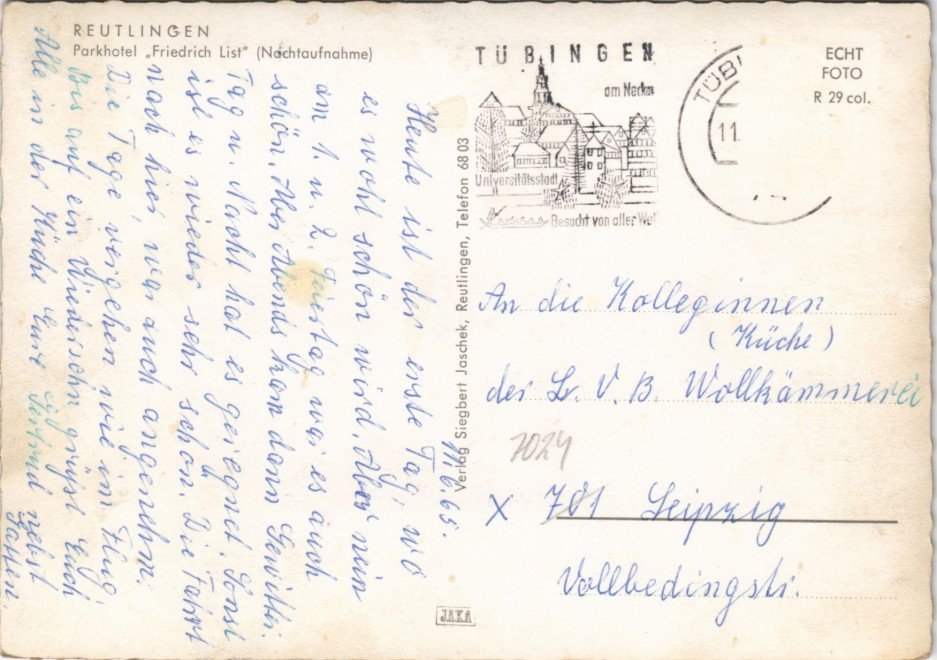 REUTLINGEN
Parkhotel „Friedrich List" (Nachtaufnahme)
11.6.65.
Heute ist der erste Tag, wo
es wohl schön wird. Aber nein
am 1. u. 2. Feiertag war es auch
schön. Aber Abends kam dann Gewitter.
Tag u. Nacht hat es geregnet. Sonst
ist es wieder sehr schön. Die Fahrt
nach hier, war auch angenehm.
Die Tage vergehen wie im Flug
Bis auf ein Wiedersehn grüßt Euch
Alle in der Küche Eure Gertrud nebst
Gatten.
Verlag Siegbert Jaschek, Reutlingen, Telefon 68 03
JAKA
TÜBINGEN
am Neckar
Universitätsstadt
Besucht von aller Welt
TÜBI
11.
ECHT
FOTO
R 29 col.
An die Kolleginnen
(Küche)
der L. V. B. Wollkämmerei
7024
X 701 Leipzig
Vollbedingstr.